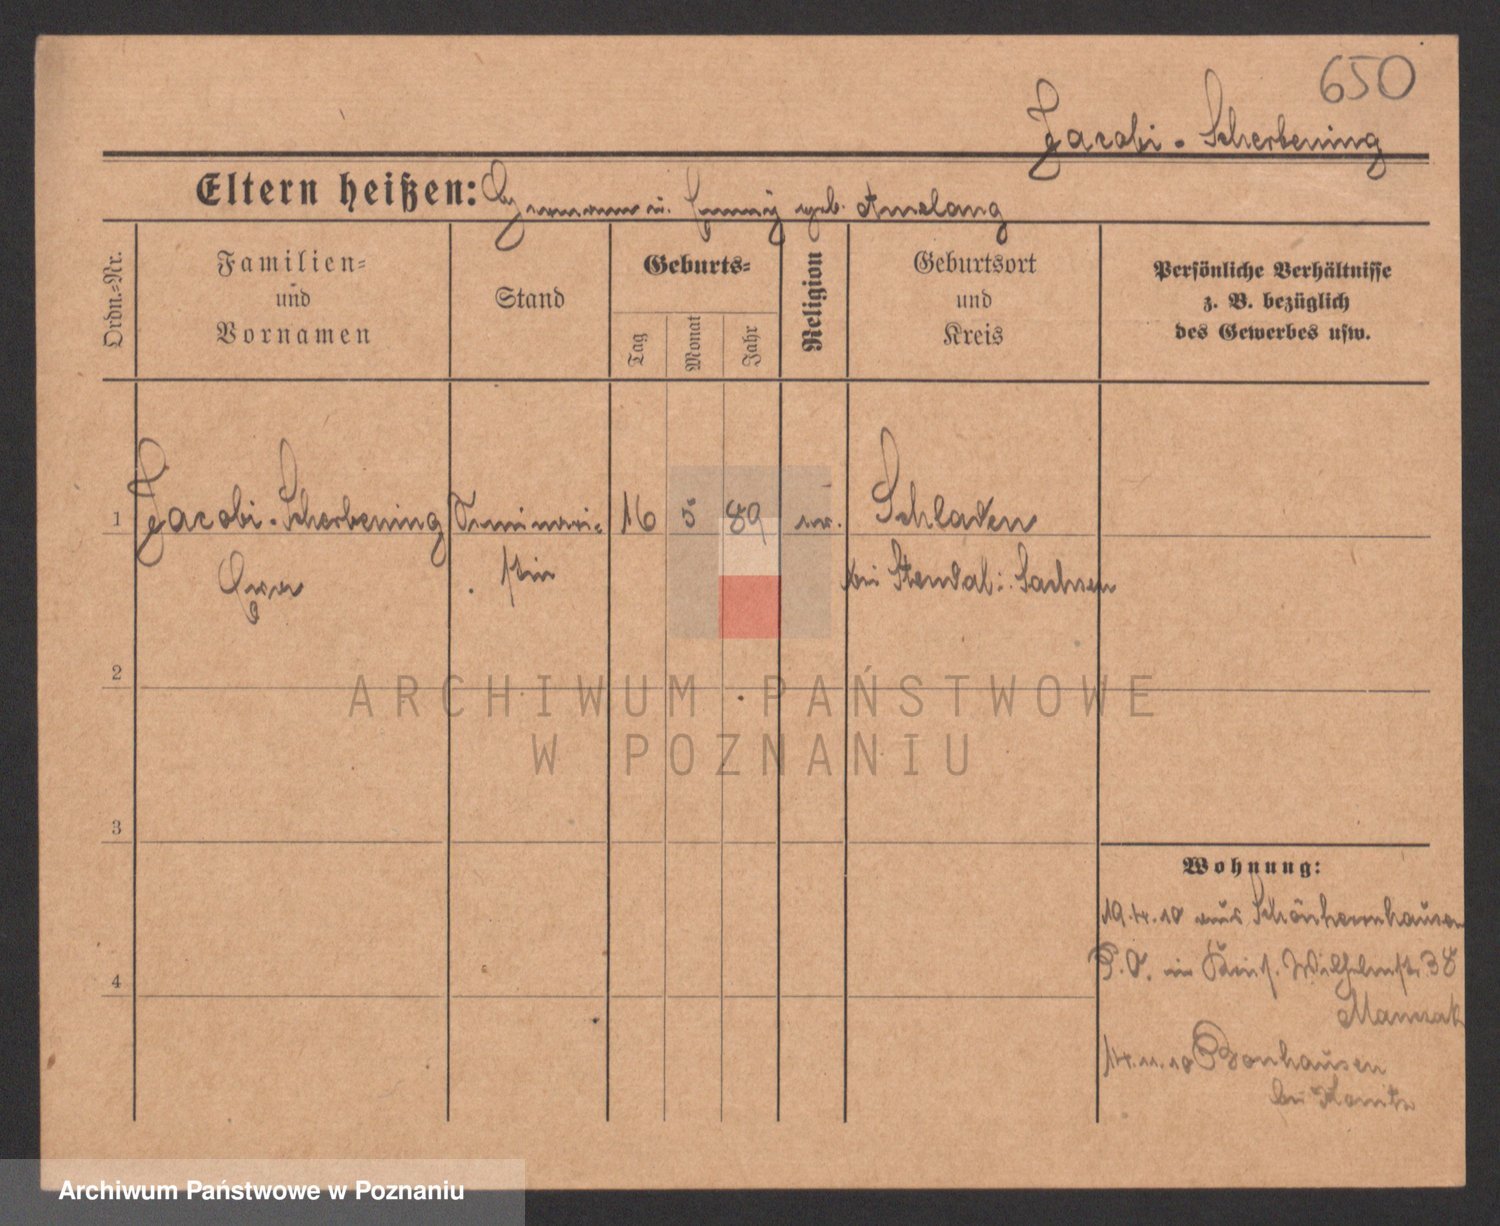 650
Jacobi - Scherbening
Eltern heißen: Hermann u. Fanny geb. Amelang
Ordn.=Nr.
Familien=
und
Vornamen
Stand
Geburts=
Tag
Monat
Jahr
Religion
Geburtsort
und
Kreis
Persönliche Verhältnisse
z. B. bezüglich
des Gewerbes usw.
1 Jacobi - Scherbening Seminari= 16 5 89 ev. Schladen
stin bei Stendal i. Sachsen
2
ARCHIWUM PAŃSTWOWE
W POZNANIU
3
Wohnung:
19.4.10 aus Schönhernhausen
4
P.O. in Wilhelmstr. 38
14.11.10 Bonhausen
bei Konitz
Archiwum Państwowe w Poznaniu